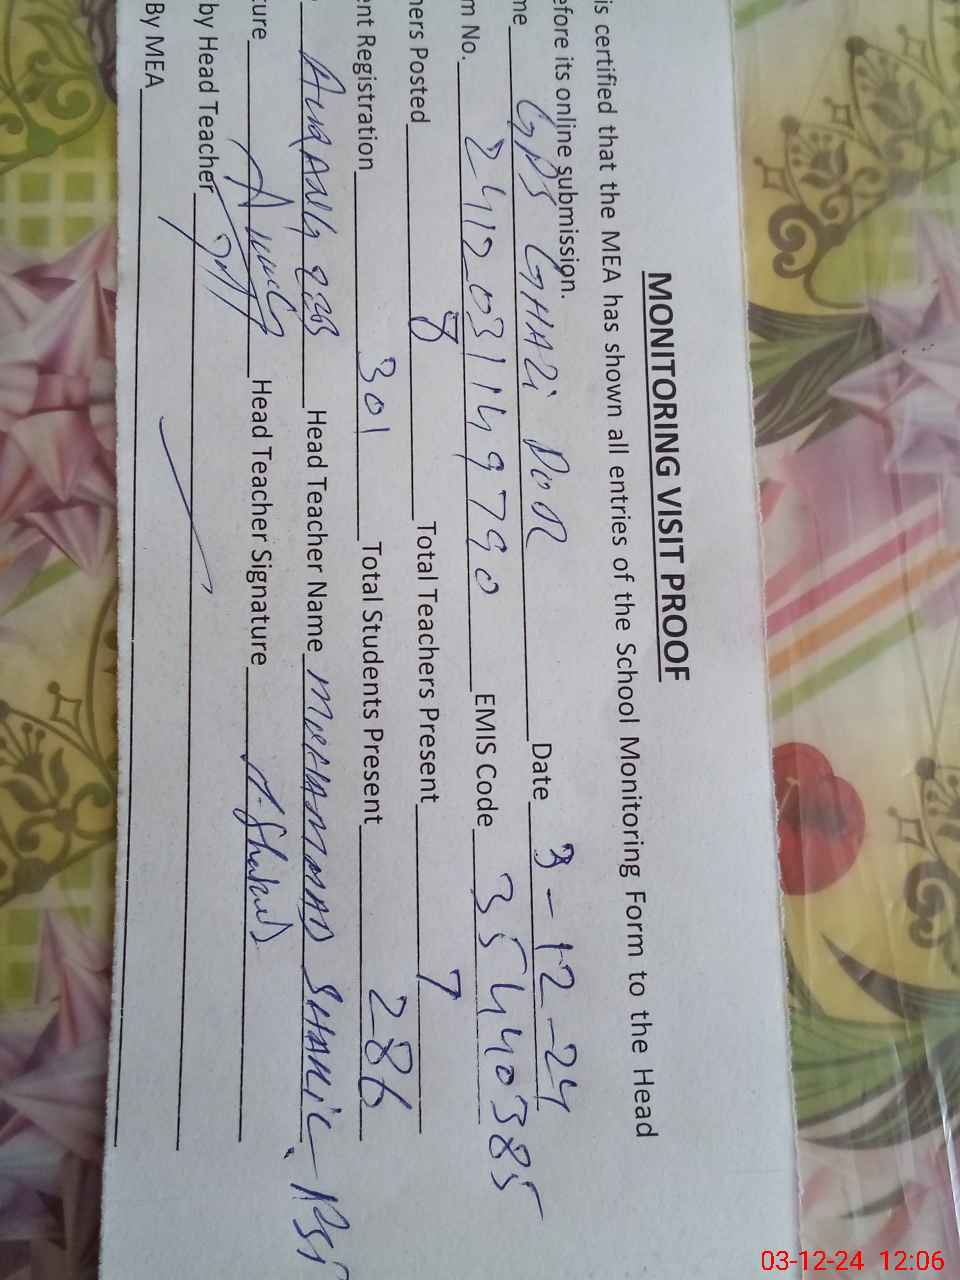 MONITORING VISIT PROOF
is certified that the MEA has shown all entries of the School Monitoring Form to the Head
efore its online submission.
me GPS GHAZi DOR Date 3-12-24
m No. 2412031149790 EMIS Code 35440385
hers Posted 8 Total Teachers Present 7
ent Registration 301 Total Students Present 286
AURANG ZEB Head Teacher Name MUHAMMAD
ture Head Teacher Signature
by Head Teacher
By MEA
03-12-24 12:06